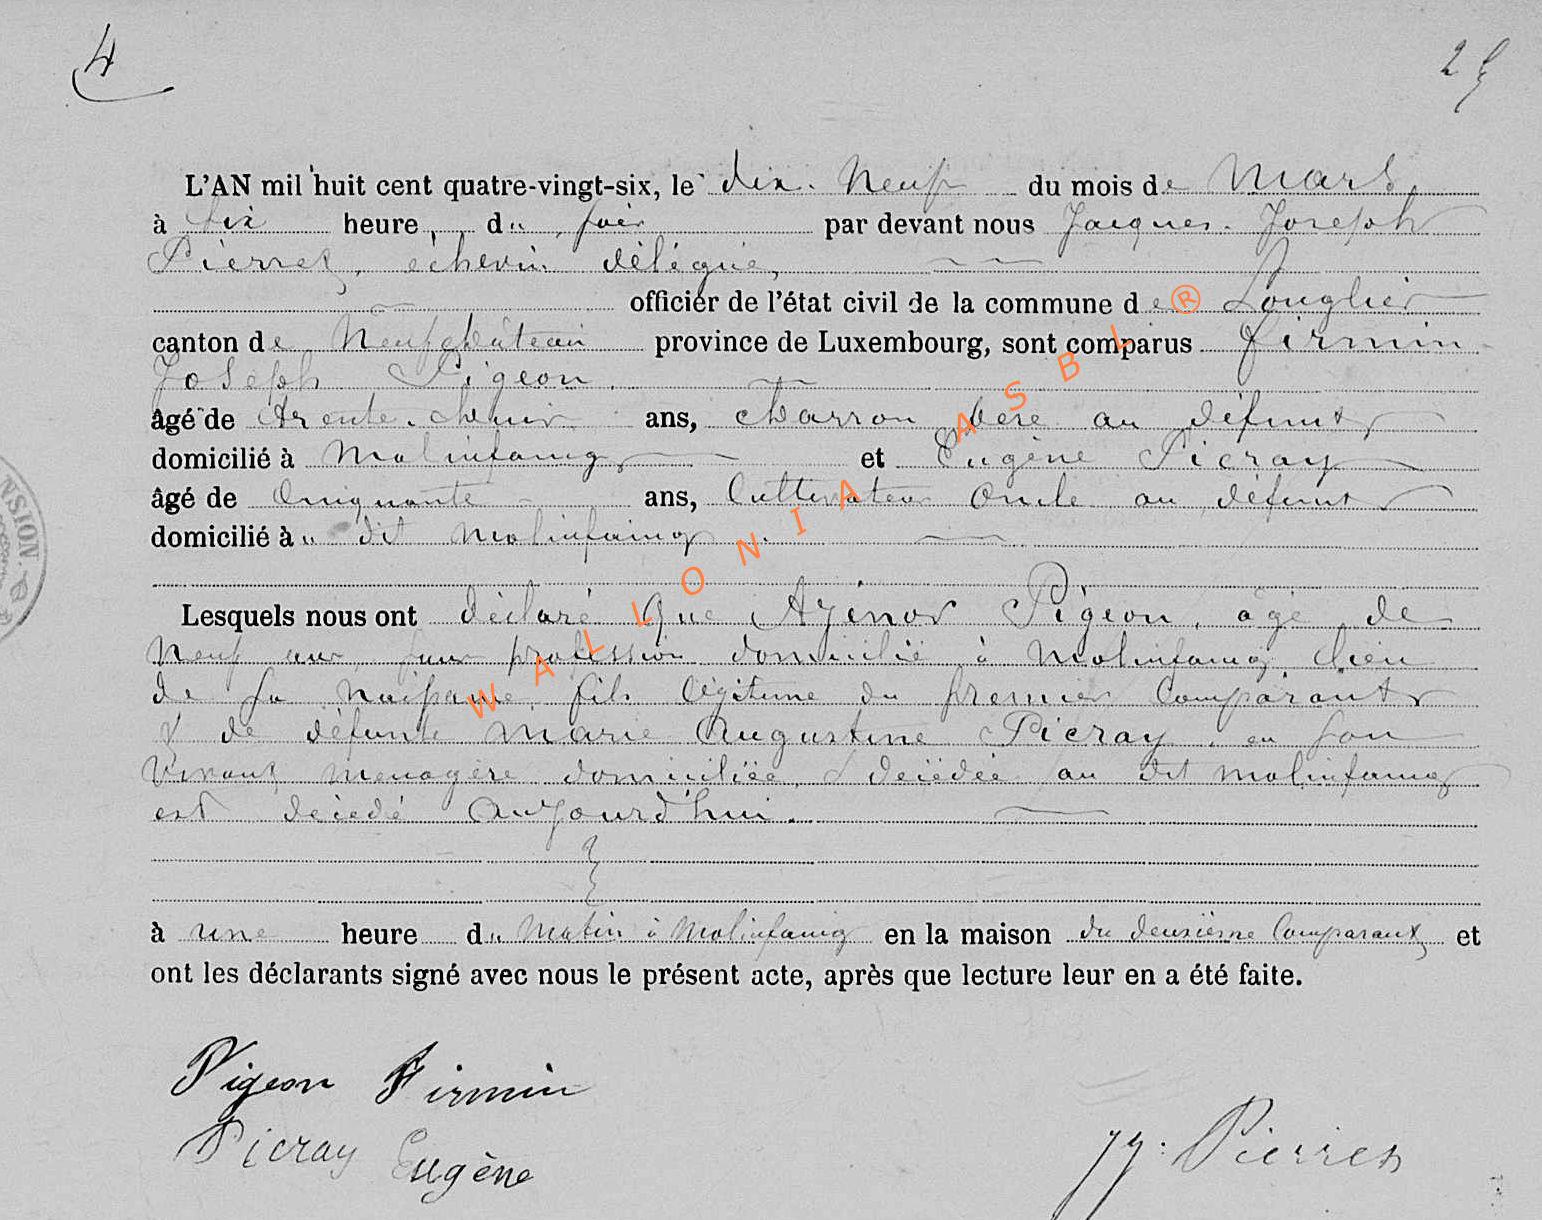 4
25
L'AN mil huit cent quatre-vingt-six, le dix. Neuf du mois de Mars,
à six heure, du soir par devant nous Jacques. Joseph
Pierret, échevin délégué,
officier de l'état civil de la commune de Longlier
canton de Neufchâteau province de Luxembourg, sont comparus firmin
Joseph Pigeon.
âgé de trente. ans, charron père au défunt
domicilié à Molinfaing et Eugène Picray
âgé de Cinquante ans, Cultivateur Oncle au défunt
domicilié à u dit Molinfaing.
Lesquels nous ont déclaré que Azénor Pigeon, âgé de
Neuf ans, sans profession domicilié à Molinfaing lieu
de sa Naissance, fils légitime du premier Comparant
& de défunte Marie Augustine Picray. en son
vivant, menagère domiciliée & décédée au dit molinfaing
est décédé aujourd'hui.
à une heure du Matin à Molinfaing en la maison du deuxième Comparant, et
ont les déclarants signé avec nous le présent acte, après que lecture leur en a été faite.
Pigeon Firmin
Picray Eugène
JJ. Pierret
NSION.
WALLONIA ASBL ®